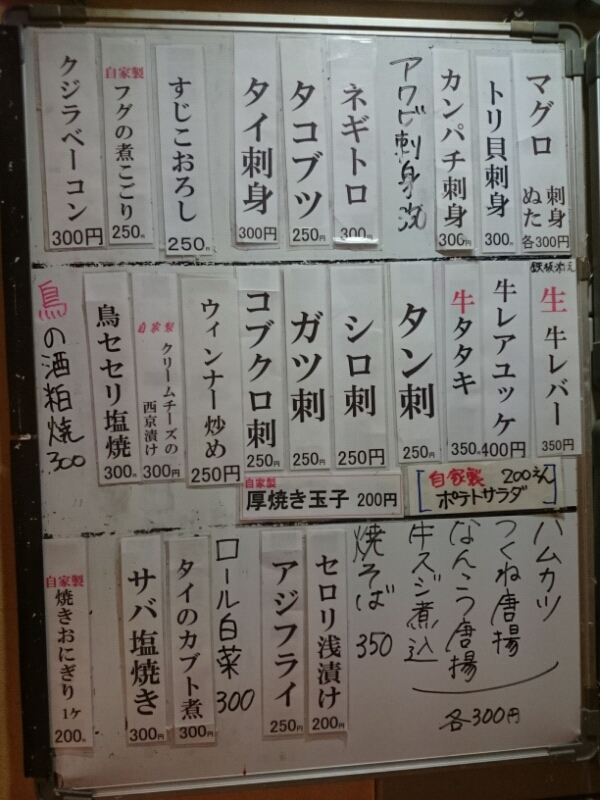 マグロ 刺身 ぬた 各300円
トリ貝刺身 300円
カンパチ刺身 300円
アワビ刺身
ネギトロ 300円
タコブツ 250円
タイ刺身 300円
すじこおろし 250円
自家製 フグの煮こごり 250円
クジラベーコン 300円
鉄板添え
生 牛レバー 350円
牛レアユッケ 400円
牛タタキ 350円
タン刺 250円
シロ刺 250円
ガツ刺 250円
コブクロ刺 250円
ウィンナー炒め 250円
自家製 クリームチーズの西京漬け 300円
鳥セセリ塩焼 300円
鳥の酒粕焼 300
自家製 ポテトサラダ 200えん
自家製 厚焼き玉子 200円
ハムカツ
つくね唐揚
なんこつ唐揚
牛スジ煮込
各300円
焼そば 350
セロリ浅漬け 200円
アジフライ 250円
ロール白菜 300
タイのカブト煮 300円
サバ塩焼き 300円
自家製 焼きおにぎり 1ケ 200円